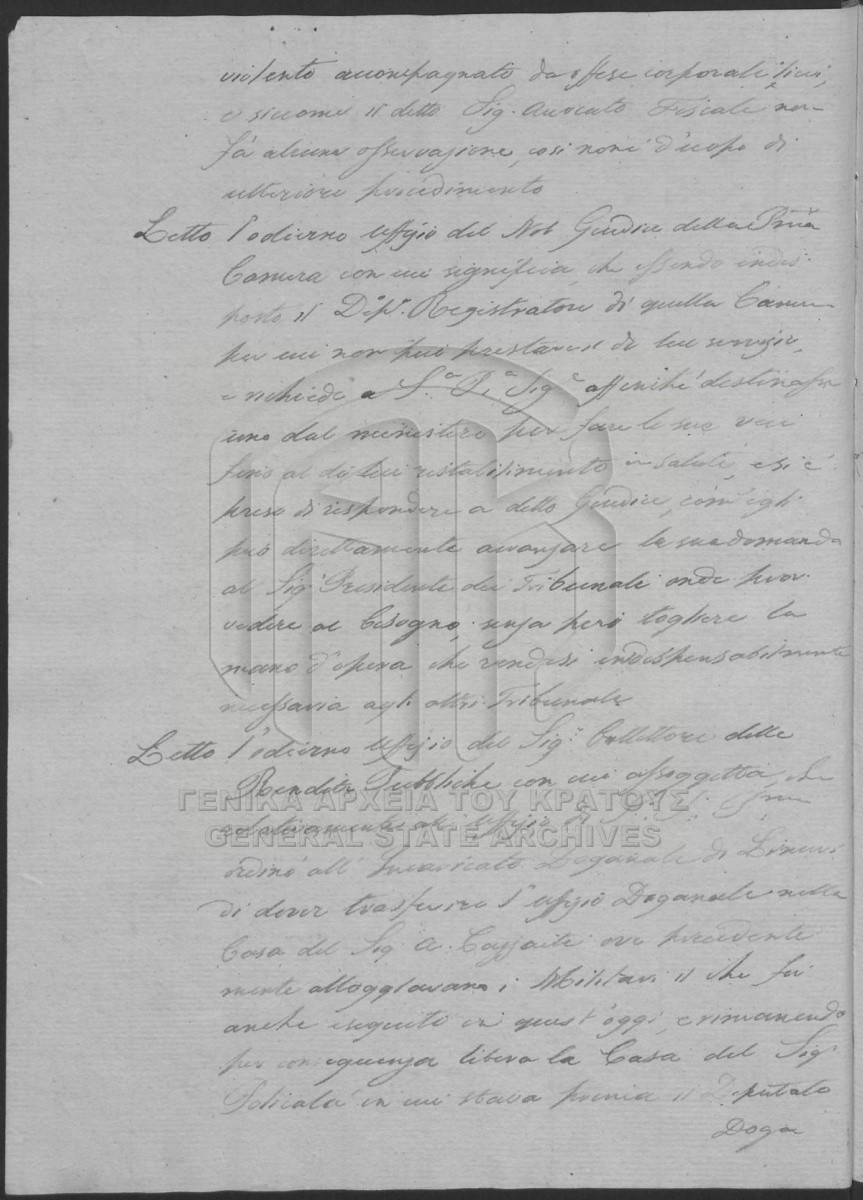 violento accompagnato da offese corporali
e siccome il detto Sig. Avvocato Fiscale non
fà alcuna osservazione, così non è d'uopo di
ulteriore procedimento
Letto l'odierno Uffizio del Nob Giudice della Prima
Camera con cui significa, che essendo indis
posto il Dep. Registratore di quella Camera
per cui non può prestare il di lui servizio,
e richiede a S.a P.a Sig.a affinché destinasse
uno dal ministero per fare le sue veci
fino al di lui ristabilimento in salute, e si è
preso di rispondere a detto Giudice, com'egli
può direttamente avanzare la sua domanda
al Sig Presidente dei Tribunali onde prov
vedere al bisogno, senza però togliere la
mano d'opera che rendesi indispensabilmente
necessaria agli altri Tribunali
Letto l'odierno Uffizio del Sig.r Collettore delle
Rendite Pubbliche con cui assoggetta, che
relativamente all' Uffizio di
ΓΕΝΙΚΑ ΑΡΧΕΙΑ ΤΟΥ ΚΡΑΤΟΥΣ
GENERAL STATE ARCHIVES
ordinò all' Incaricato Doganale di
di dover trasferire l'Uffizio Doganale nella
Casa del Sig A. ove precedente
mente alloggiavano i Militari il che fu
anche eseguito in quest'oggi, e rimanendo
per conseguenza libera la Casa del Sig
in cui stava prima il Deputato
Doga